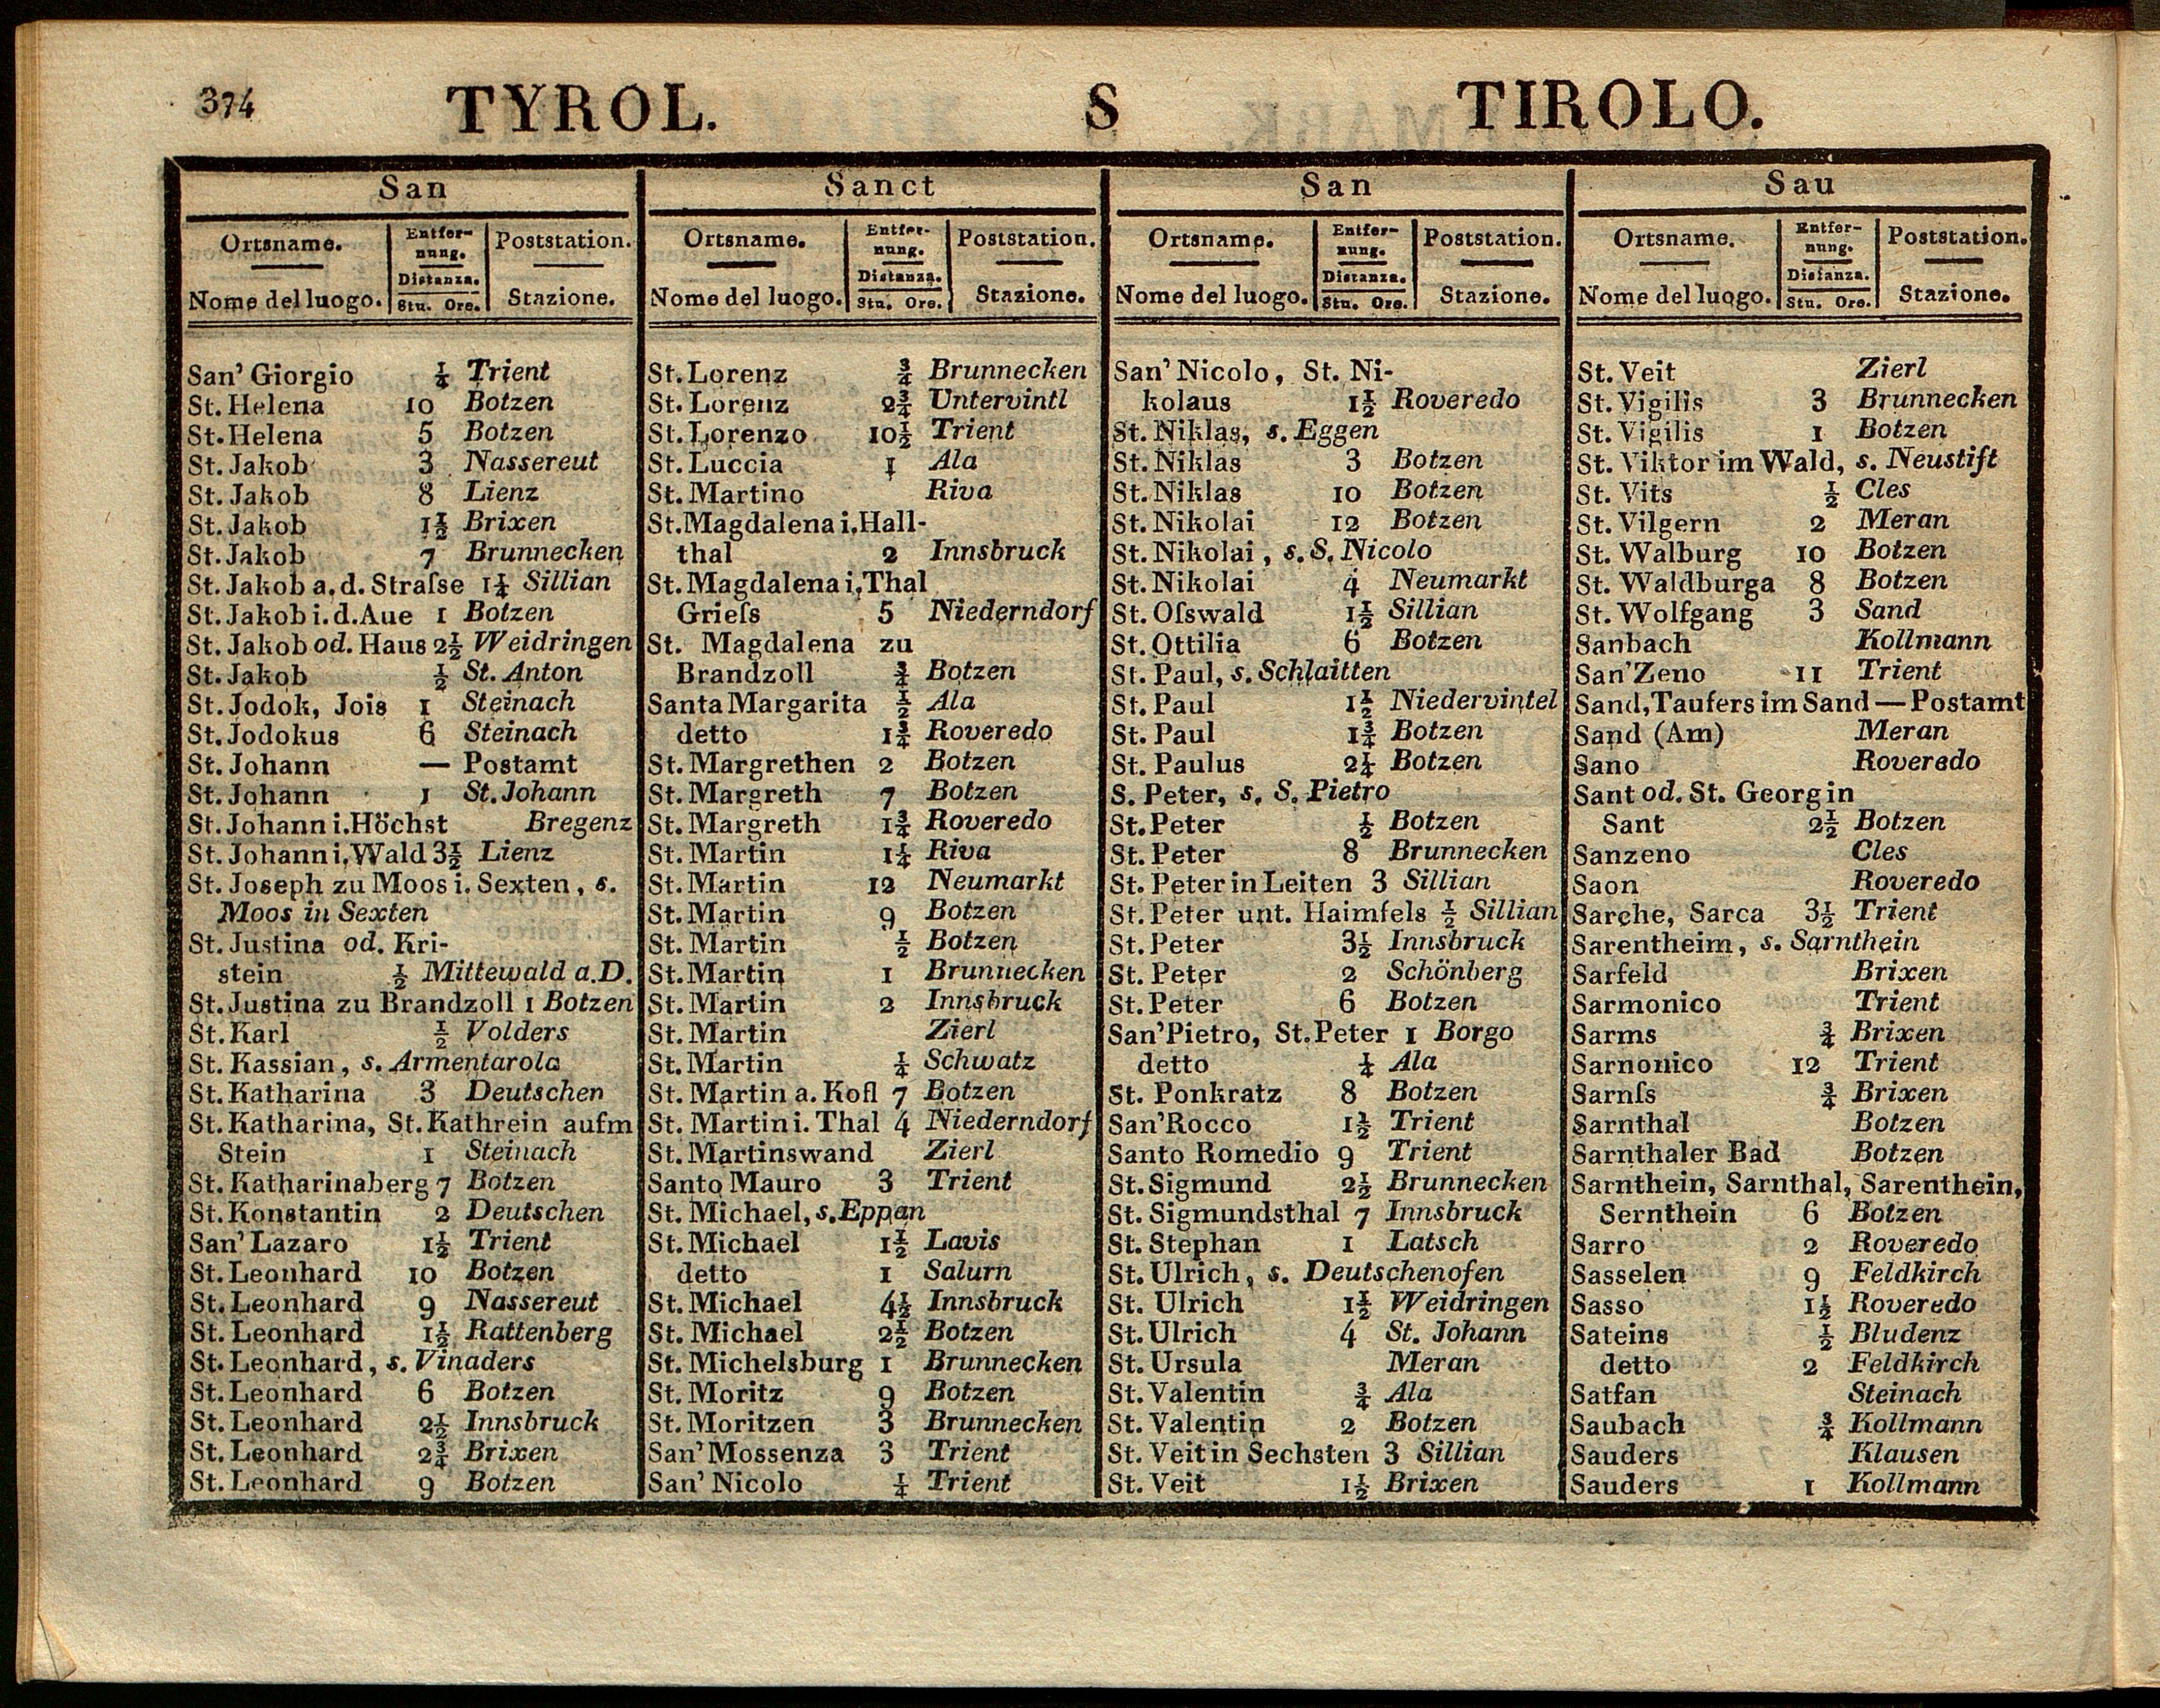 374 TYROL. S TIROLO.
San
Ortsname. Entfer- Poststation.
nung.
Distanza.
Nome del luogo. Stu. Ore. Stazione.
San' Giorgio ¼ Trient
St. Helena 10 Botzen
St. Helena 5 Botzen
St. Jakob 3 Nassereut
St. Jakob 8 Lienz
St. Jakob 1½ Brixen
St. Jakob 7 Brunnecken
St. Jakob a. d. Straſse 1¼ Sillian
St. Jakob i. d. Aue 1 Botzen
St. Jakob od. Haus 2½ Weidringen
St. Jakob ½ St. Anton
St. Jodok, Jois 1 Steinach
St. Jodokus 6 Steinach
St. Johann — Postamt
St. Johann 1 St. Johann
St. Johann i. Höchst Bregenz
St. Johann i. Wald 3½ Lienz
St. Joseph zu Moos i. Sexten, s.
Moos in Sexten
St. Justina od. Kri-
stein ½ Mittewald a. D.
St. Justina zu Brandzoll 1 Botzen
St. Karl ½ Volders
St. Kassian, s. Armentarola
St. Katharina 3 Deutschen
St. Katharina, St. Kathrein aufm
Stein 1 Steinach
St. Katharinaberg 7 Botzen
St. Konstantin 2 Deutschen
San' Lazaro 1½ Trient
St. Leonhard 10 Botzen
St. Leonhard 9 Nassereut
St. Leonhard 1½ Rattenberg
St. Leonhard, s. Vinaders
St. Leonhard 6 Botzen
St. Leonhard 2½ Innsbruck
St. Leonhard 2¾ Brixen
St. Leonhard 9 Botzen
Sanct
Ortsname. Entfer- Poststation.
nung.
Distanza.
Nome del luogo. Stu. Ore. Stazione.
St. Lorenz ¾ Brunnecken
St. Lorenz 2¾ Untervintl
St. Lorenzo 10½ Trient
St. Luccia 1 Ala
St. Martino Riva
St. Magdalena i. Hall-
thal 2 Innsbruck
St. Magdalena i. Thal
Grieſs 5 Niederndorf
St. Magdalena zu
Brandzoll ¾ Botzen
Santa Margarita ½ Ala
detto 1¾ Roveredo
St. Margrethen 2 Botzen
St. Margreth 7 Botzen
St. Margreth 1¾ Roveredo
St. Martin 1¼ Riva
St. Martin 12 Neumarkt
St. Martin 9 Botzen
St. Martin ½ Botzen
St. Martin 1 Brunnecken
St. Martin 2 Innsbruck
St. Martin Zierl
St. Martin ¼ Schwatz
St. Martin a. Kofl 7 Botzen
St. Martin i. Thal 4 Niederndorf
St. Martinswand Zierl
Santo Mauro 3 Trient
St. Michael, s. Eppan
St. Michael 1½ Lavis
detto 1 Salurn
St. Michael 4½ Innsbruck
St. Michael 2½ Botzen
St. Michelsburg 1 Brunnecken
St. Moritz 9 Botzen
St. Moritzen 3 Brunnecken
San' Mossenza 3 Trient
San' Nicolo ¼ Trient
San
Ortsname. Entfer- Poststation.
nung.
Distanza.
Nome del luogo. Stu. Ore. Stazione.
San' Nicolo, St. Ni-
kolaus 1½ Roveredo
St. Niklas, s. Eggen
St. Niklas 3 Botzen
St. Niklas 10 Botzen
St. Nikolai 12 Botzen
St. Nikolai, s. S. Nicolo
St. Nikolai 4 Neumarkt
St. Oſswald 1½ Sillian
St. Ottilia 6 Botzen
St. Paul, s. Schlaitten
St. Paul 1½ Niedervintel
St. Paul 1¾ Botzen
St. Paulus 2¼ Botzen
S. Peter, s. S. Pietro
St. Peter ½ Botzen
St. Peter 8 Brunnecken
St. Peter in Leiten 3 Sillian
St. Peter unt. Haimfels ½ Sillian
St. Peter 3½ Innsbruck
St. Peter 2 Schönberg
St. Peter 6 Botzen
San' Pietro, St. Peter 1 Borgo
detto ¼ Ala
St. Ponkratz 8 Botzen
San' Rocco 1½ Trient
Santo Romedio 9 Trient
St. Sigmund 2½ Brunnecken
St. Sigmundsthal 7 Innsbruck
St. Stephan 1 Latsch
St. Ulrich, s. Deutschenofen
St. Ulrich 1½ Weidringen
St. Ulrich 4 St. Johann
St. Ursula Meran
St. Valentin ¾ Ala
St. Valentin 2 Botzen
St. Veit in Sechsten 3 Sillian
St. Veit 1½ Brixen
Sau
Ortsname. Entfer- Poststation.
nung.
Distanza.
Nome del luogo. Stu. Ore. Stazione.
St. Veit Zierl
St. Vigilis 3 Brunnecken
St. Vigilis 1 Botzen
St. Viktor im Wald, s. Neustift
St. Vits ½ Cles
St. Vilgern 2 Meran
St. Walburg 10 Botzen
St. Waldburga 8 Botzen
St. Wolfgang 3 Sand
Sanbach Kollmann
San' Zeno 11 Trient
Sand, Taufers im Sand — Postamt
Sand (Am) Meran
Sano Roveredo
Sant od. St. Georg in
Sant 2½ Botzen
Sanzeno Cles
Saon Roveredo
Sarche, Sarca 3½ Trient
Sarentheim, s. Sarnthein
Sarfeld Brixen
Sarmonico Trient
Sarms ¾ Brixen
Sarnonico 12 Trient
Sarnſs ¾ Brixen
Sarnthal Botzen
Sarnthaler Bad Botzen
Sarnthein, Sarnthal, Sarenthein,
Sernthein 6 Botzen
Sarro 2 Roveredo
Sasselen 9 Feldkirch
Sasso 1½ Roveredo
Sateins ½ Bludenz
detto 2 Feldkirch
Satfan Steinach
Saubach ¾ Kollmann
Sauders Klausen
Sauders 1 Kollmann